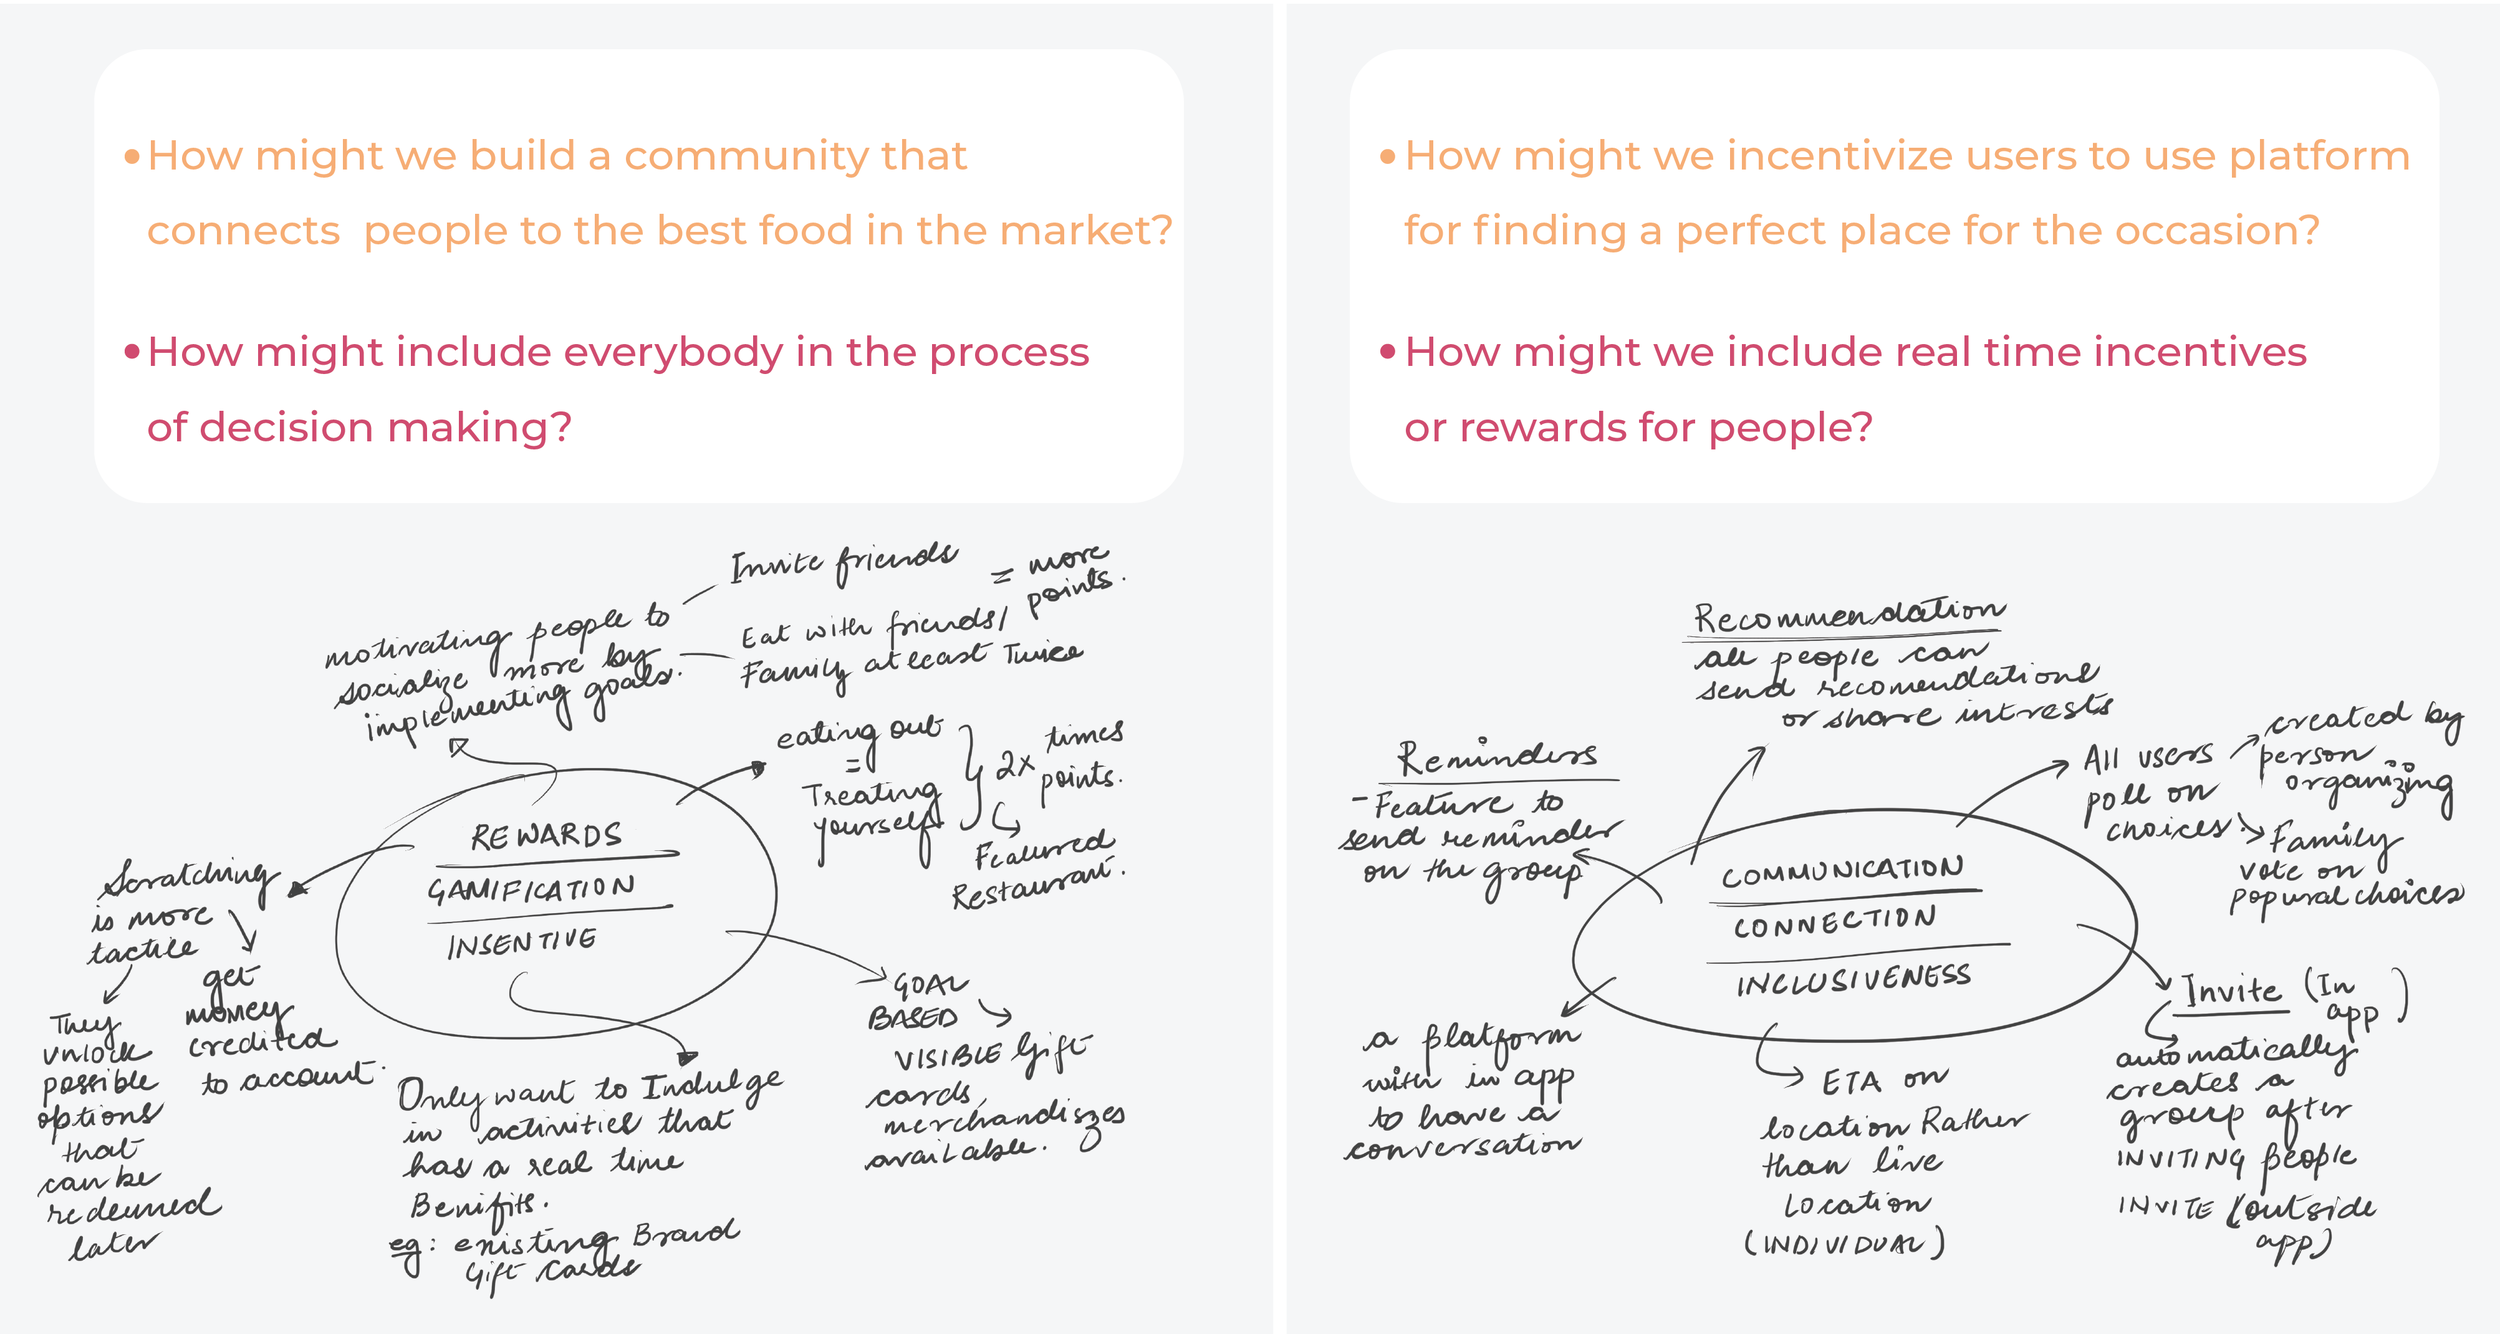 •How might we build a community that
connects people to the best food in the market?
•How might include everybody in the process
of decision making?
Invite friends
= more
points.
Eat with friends/
Family atleast Twice
motivating people to
socialize more by
implementing goals.
eating out
=
Treating
yourself
2x times
points.
Featured
Restaurant.
REWARDS
GAMIFICATION
INSENTIVE
Scratching
is more
tactile
They
unlock
possible
options
that
can be
redeemed
later
get
money
credited
to account.
Only want to Indulge
in activities that
has a real time
Benifits.
eg: existing Brand
Gift Cards
GOAL
BASED
VISIBLE Gift
cards,
merchandizes
available.
•How might we incentivize users to use platform
for finding a perfect place for the occasion?
•How might we include real time incentives
or rewards for people?
Recommendation
all people can
send recomendations
or share intrests
Reminders
-Feature to
send reminder
on the group
All users
poll on
choices.
created by
person
organizing
Family
vote on
popural choices
COMMUNICATION
CONNECTION
INCLUSIVENESS
a platform
with in app
to have a
conversation
ETA on
location Rather
than live
Location
(INDIVIDUAL)
Invite (In
app)
automatically
creates a
group after
INVITING people
INVITE (outside
app)